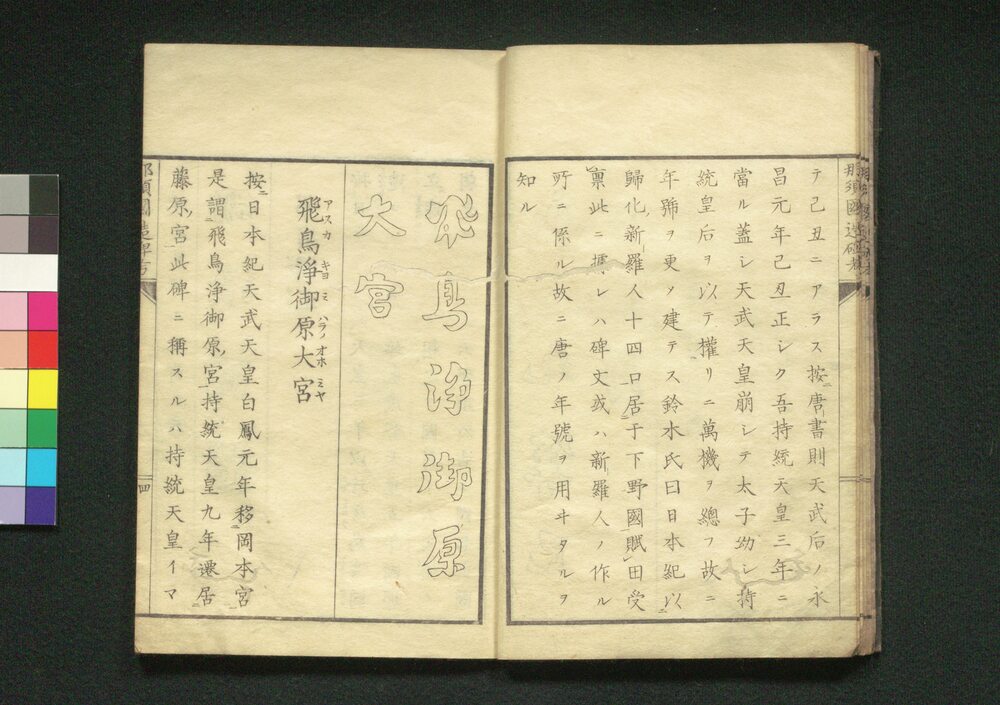 テ己丑ニアラス按ニ唐書則天武后ノ永
昌元年己丑正シク吾持統天皇三年ニ
當ル蓋シ天武天皇崩シテ太子幼シ持
統皇后ヲ以テ權リニ萬機ヲ總フ故ニ
年號ヲ更メ建テス鈴木氏曰日本紀ニ以
歸化新羅人十四口居于下野國賦田受
稟此ニ據レハ碑文或ハ新羅人ノ作ル
所ニ係ル故ニ唐ノ年號ヲ用ヰタルヲ
知ル
飛鳥淨御原
大宮
飛鳥淨御原大宮
アスカキヨミハラノオホミヤ
按ニ日本紀天武天皇白鳳元年移岡本宮
是謂飛鳥淨御原宮持統天皇九年遷居
藤原宮此碑ニ稱スルハ持統天皇イマ
那須國造碑考
四